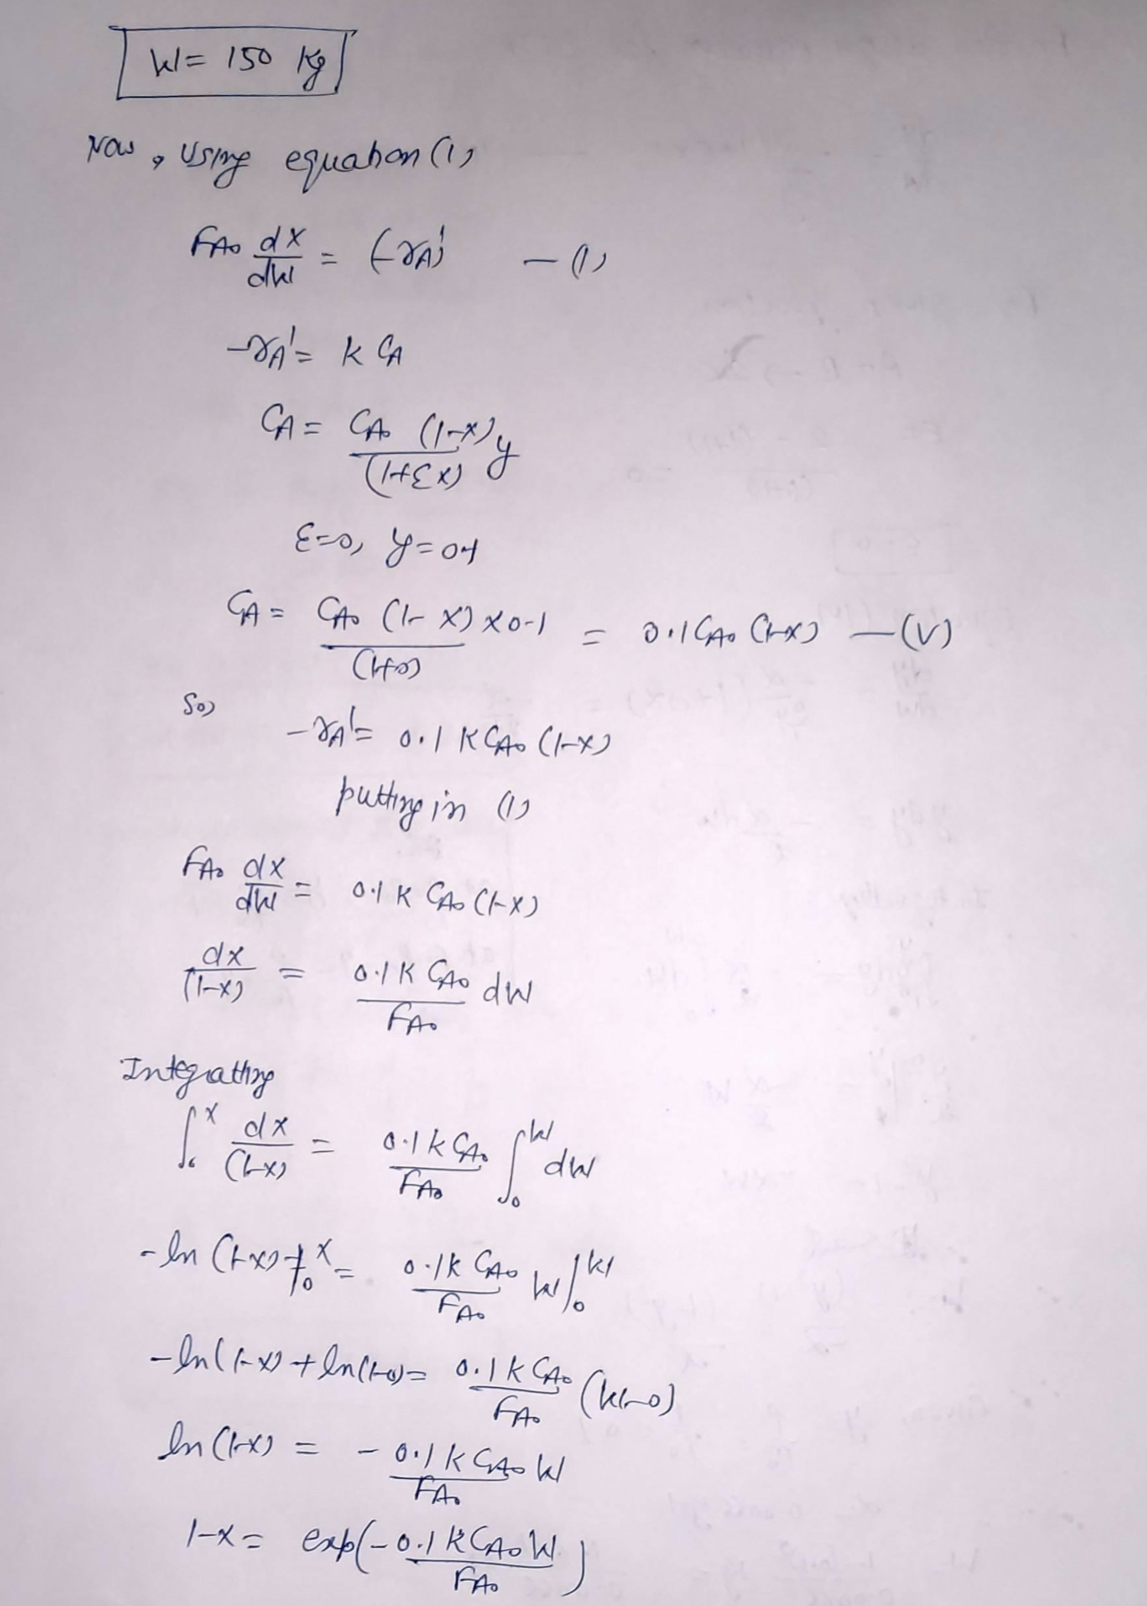 W = 150 kg
Now, using equation (1)
FA0 dx/dW = (-rA') — (1)
-rA' = k CA
CA = CA0 (1-x) y / (1+εx)
ε=0, y=0.1
CA = CA0 (1-x) x 0.1 / (1+0) = 0.1 CA0 (1-x) — (V)
So,
-rA' = 0.1 k CA0 (1-x)
putting in (1)
FA0 dx/dW = 0.1 k CA0 (1-x)
dx/(1-x) = 0.1 k CA0/FA0 dW
Integrating
∫0^x dx/(1-x) = 0.1 k CA0/FA0 ∫0^W dW
-ln (1-x)]0^x = 0.1 k CA0/FA0 W]0^W
-ln(1-x) + ln(1-0) = 0.1 k CA0/FA0 (W-0)
ln (1-x) = - 0.1 k CA0 W/FA0
1-x = exp(-0.1 k CA0 W/FA0)